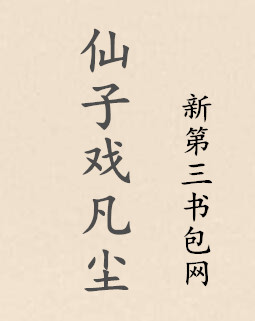 仙子戏凡尘
新第三书包网